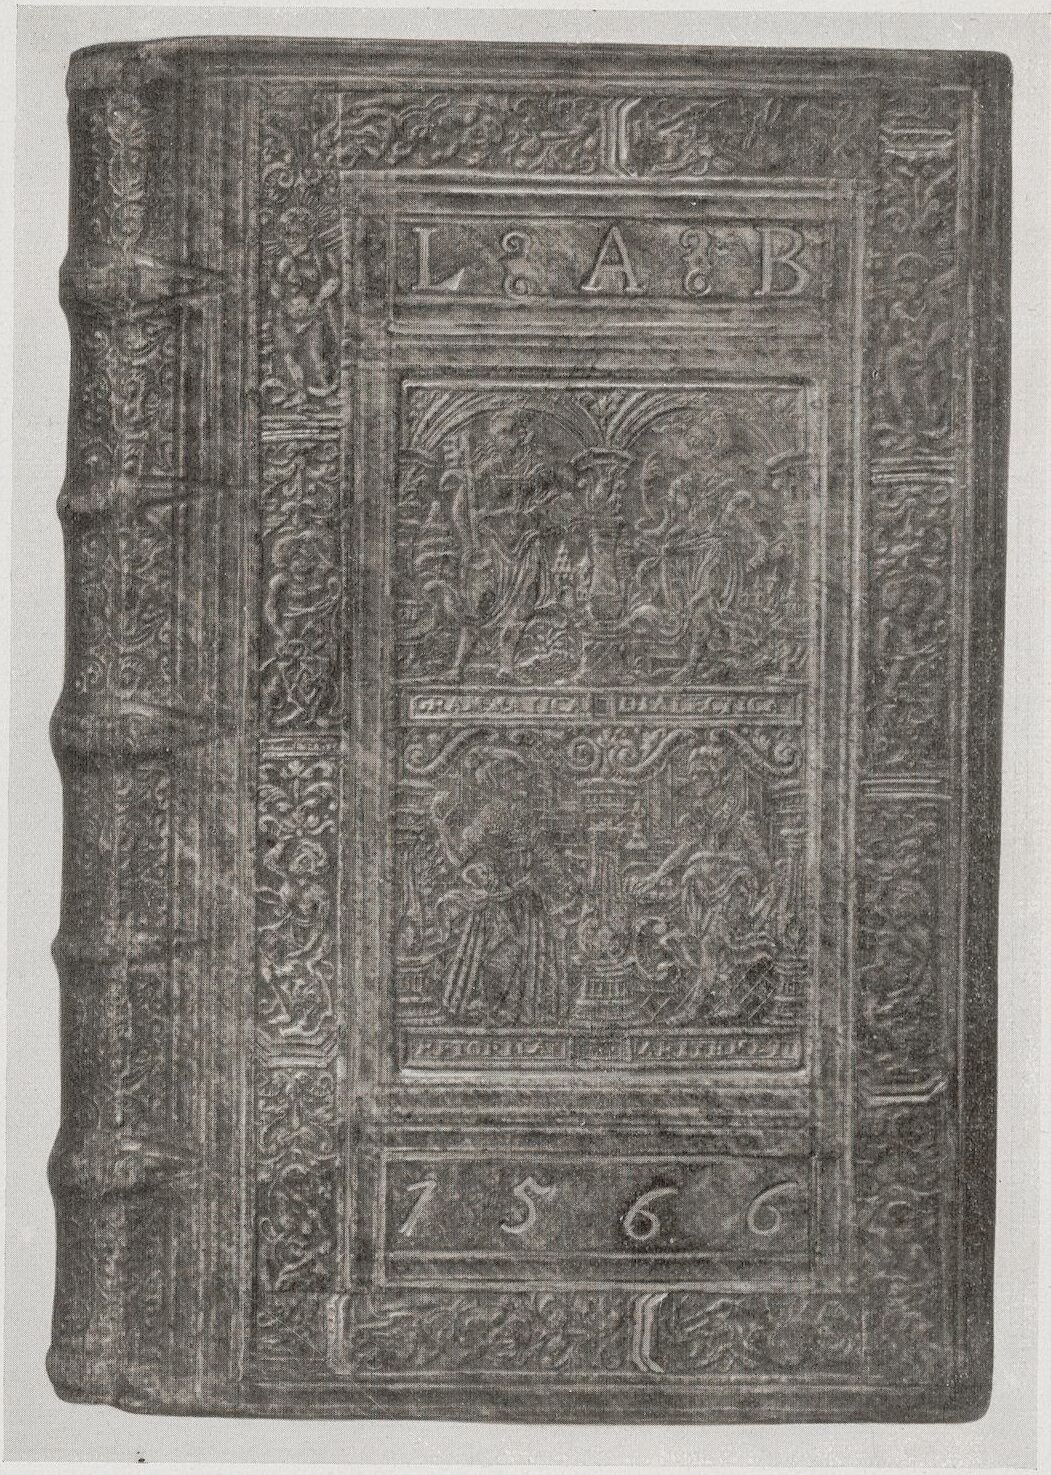 L A B
GRAMATICA DIALECTICA
RETORICA ARITHMETI
1566